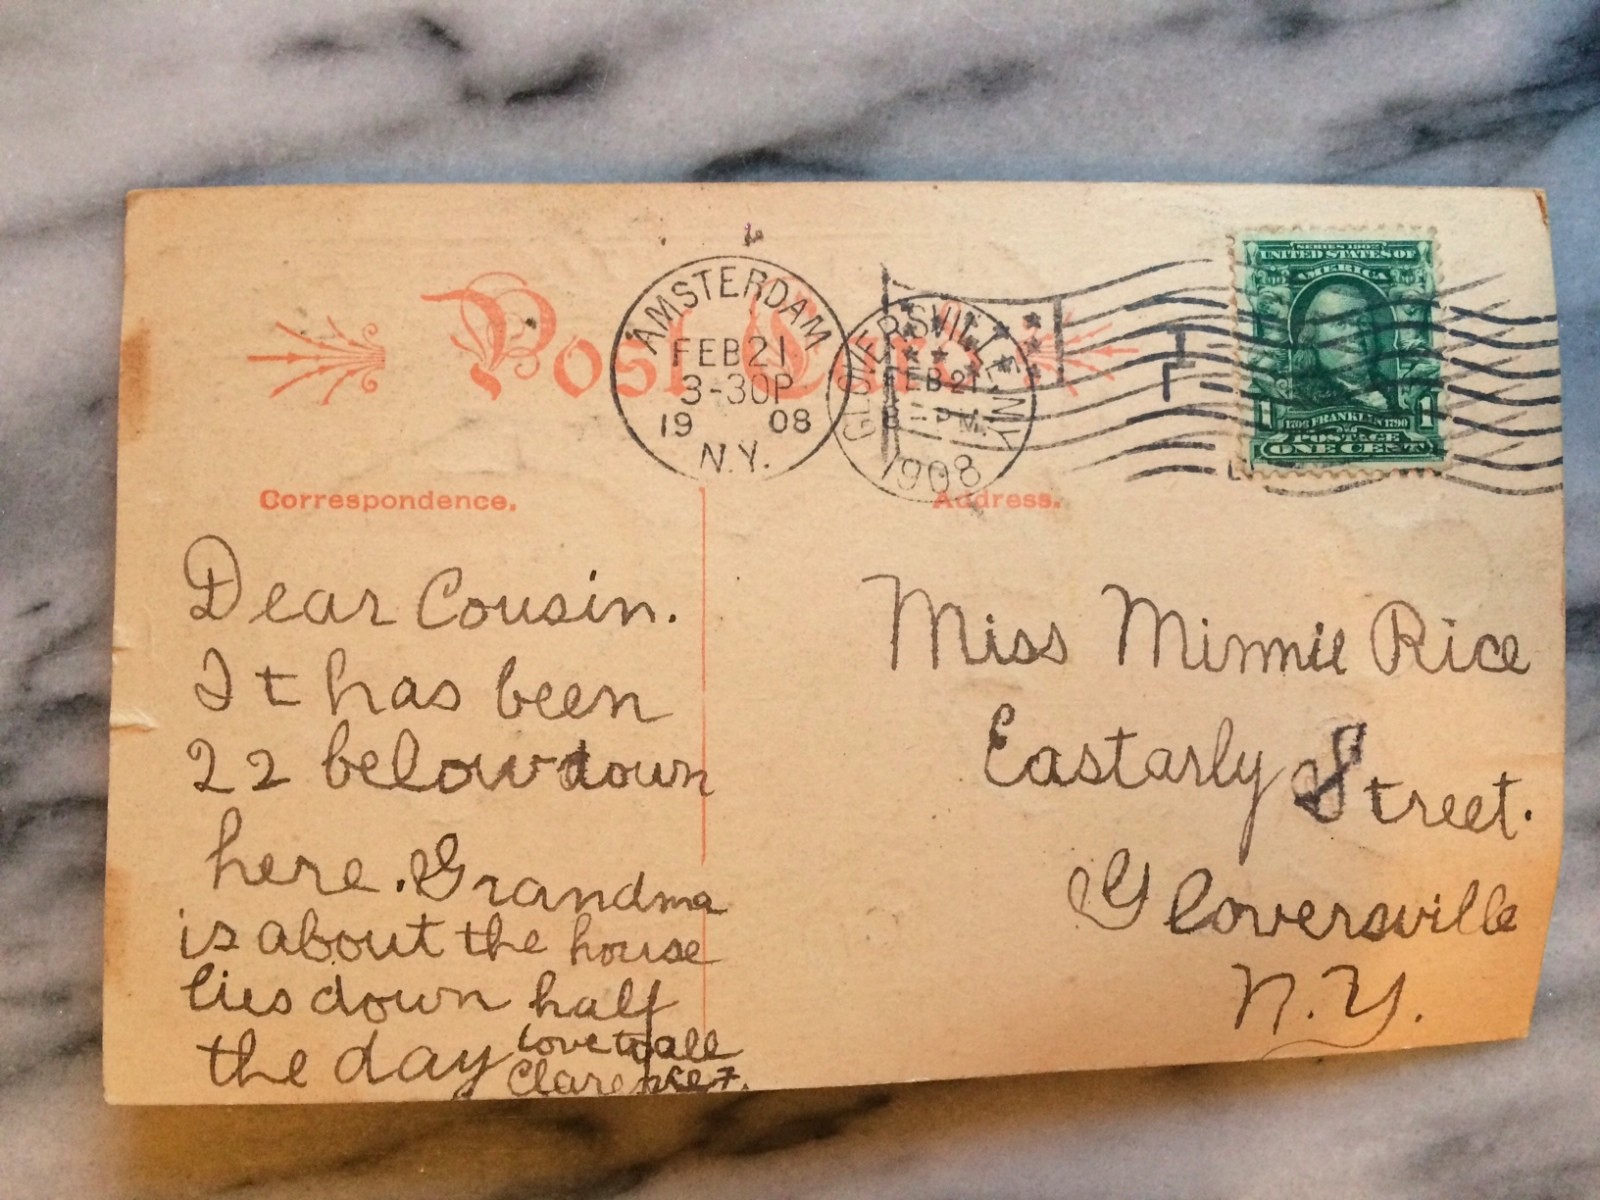 Post Card
AMSTERDAM
FEB 21
3-30P
19 08
N.Y.
GLOVERSVILLE, N.Y.
FEB 21
8 - PM.
1908
SERIES 1902
UNITED STATES OF
AMERICA
1 1
1706 FRANKLIN 1790
POSTAGE
ONE CENT
Correspondence.
Dear Cousin.
It has been
22 below down
here. Grandma
is about the house
lies down half
the day
love to all
Clarence F.
Address.
Miss Minnie Rice
Eastarly Street.
Gloversville
N.Y.